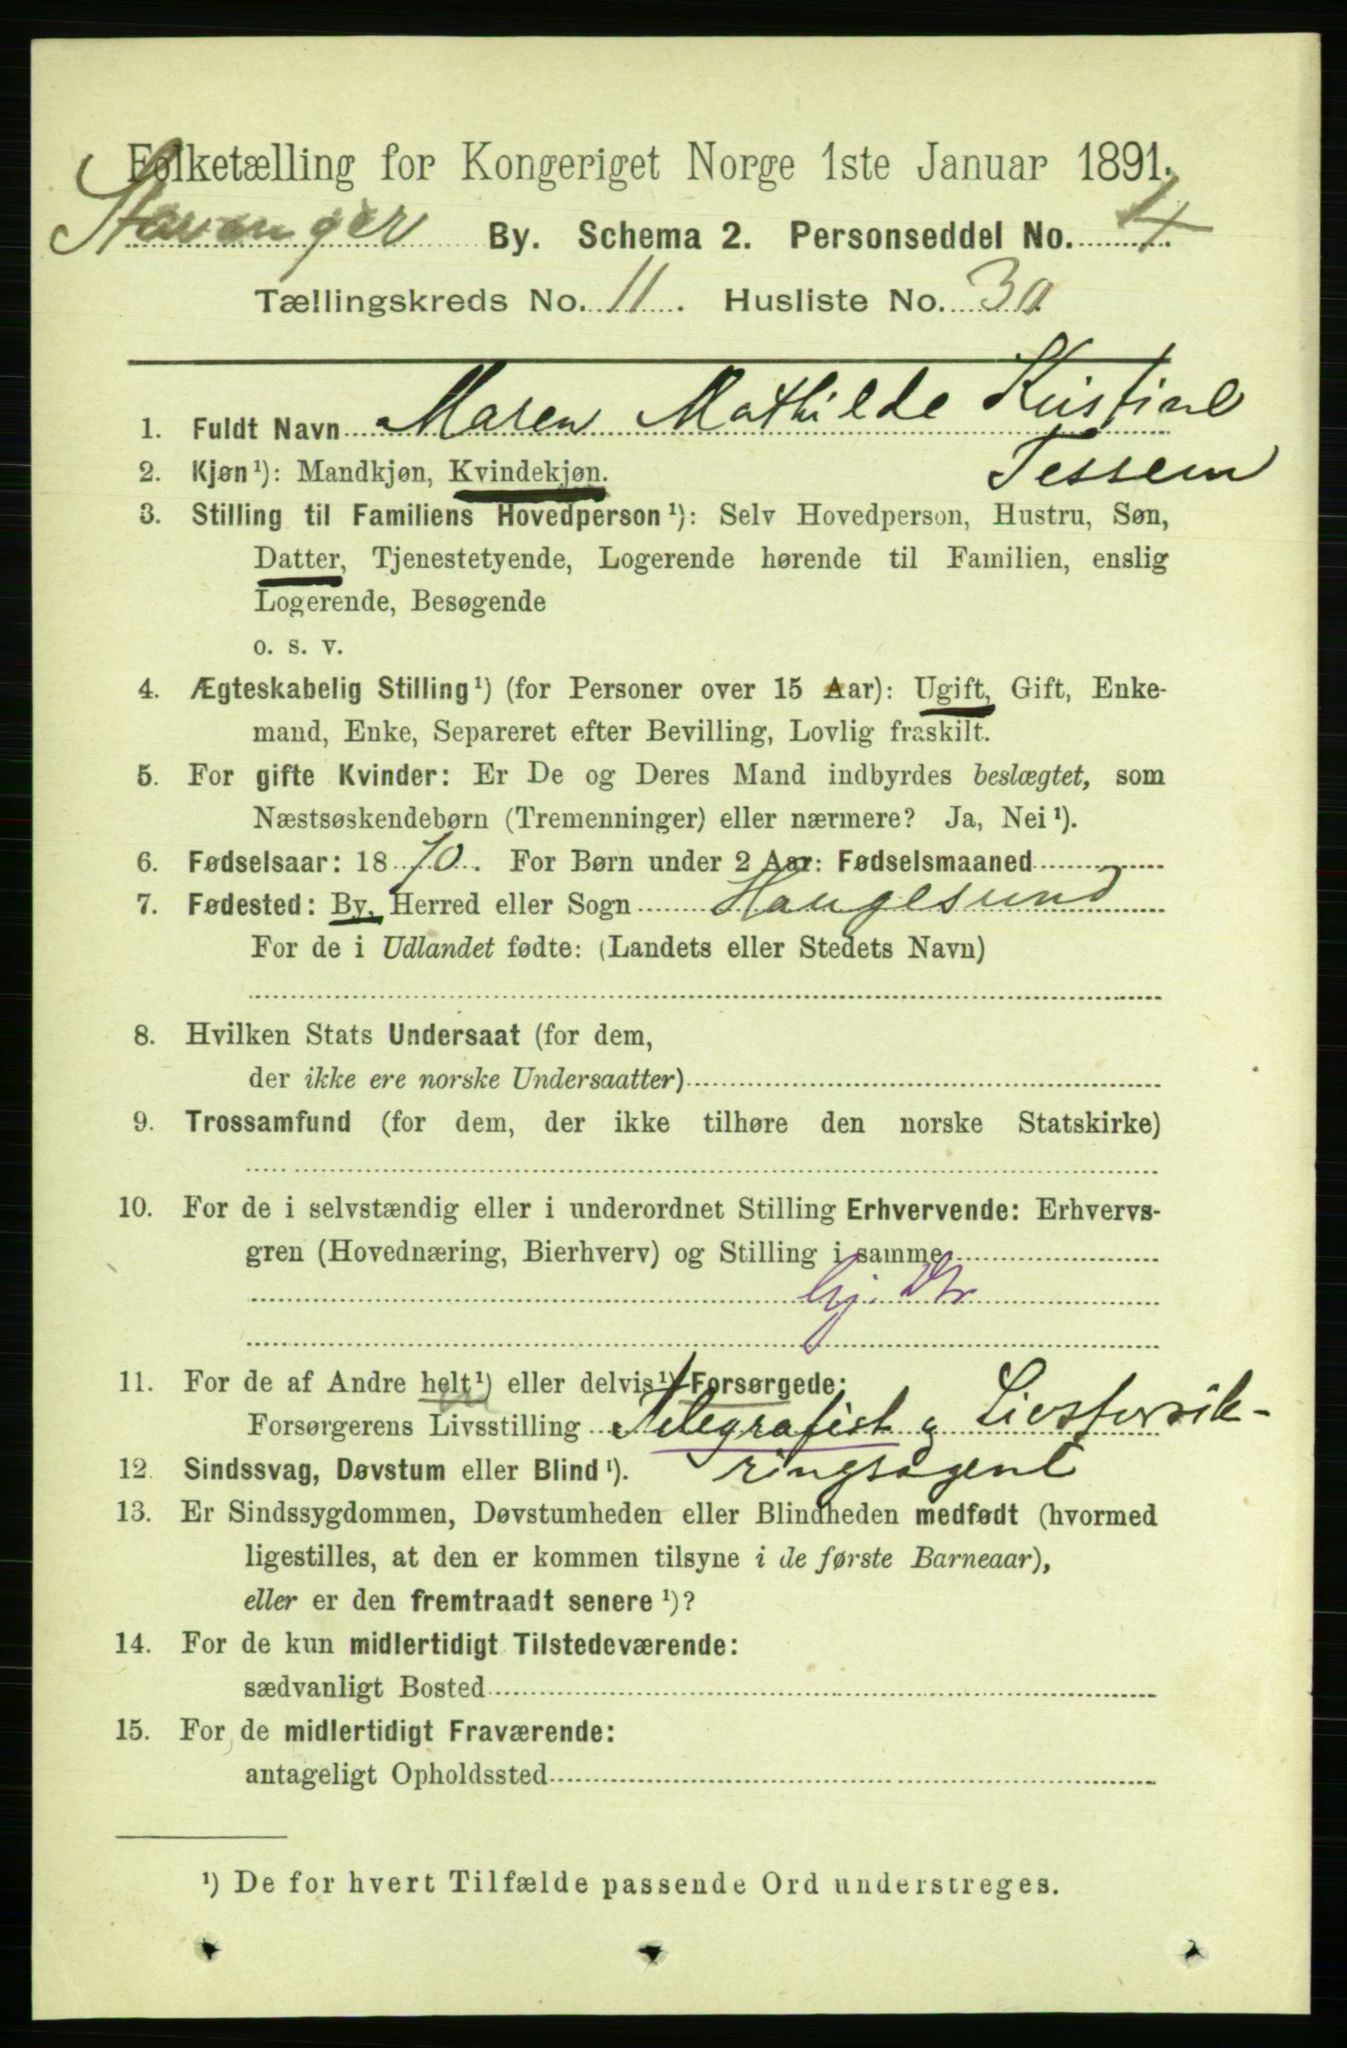 Folketælling for Kongeriget Norge 1ste Januar 1891.
Stavanger By. Schema 2. Personseddel No. 4
Tællingskreds No. 11. Husliste No. 30
1. Fuldt Navn Maren Mathilde Kristine
Tessem
2. Kjøn¹): Mandkjøn, Kvindekjøn.
3. Stilling til Familiens Hovedperson¹): Selv Hovedperson, Hustru, Søn,
Datter, Tjenestetyende, Logerende hørende til Familien, enslig
Logerende, Besøgende
o. s. v.
4. Ægteskabelig Stilling¹) (for Personer over 15 Aar): Ugift, Gift, Enke-
mand, Enke, Separeret efter Bevilling, Lovlig fraskilt.
5. For gifte Kvinder: Er De og Deres Mand indbyrdes beslægtet, som
Næstsøskendebørn (Tremenninger) eller nærmere? Ja, Nei¹).
6. Fødselsaar: 1870. For Børn under 2 Aar: Fødselsmaaned
7. Fødested: By, Herred eller Sogn Haugesund
For de i Udlandet fødte: (Landets eller Stedets Navn)
8. Hvilken Stats Undersaat (for dem,
der ikke ere norske Undersaatter)
9. Trossamfund (for dem, der ikke tilhøre den norske Statskirke)
10. For de i selvstændig eller i underordnet Stilling Erhvervende: Erhvervs-
gren (Hovednæring, Bierhverv) og Stilling i samme
11. For de af Andre helt¹) eller delvis¹) Forsørgede:
Forsørgerens Livsstilling Telegrafist og Livsforsik-
ringsagent
12. Sindssvag, Døvstum eller Blind¹).
13. Er Sindssygdommen, Døvstumheden eller Blindheden medfødt (hvormed
ligestilles, at den er kommen tilsyne i de første Barneaar),
eller er den fremtraadt senere¹)?
14. For de kun midlertidigt Tilstedeværende:
sædvanligt Bosted
15. For de midlertidigt Fraværende:
antageligt Opholdssted
¹) De for hvert Tilfælde passende Ord understreges.